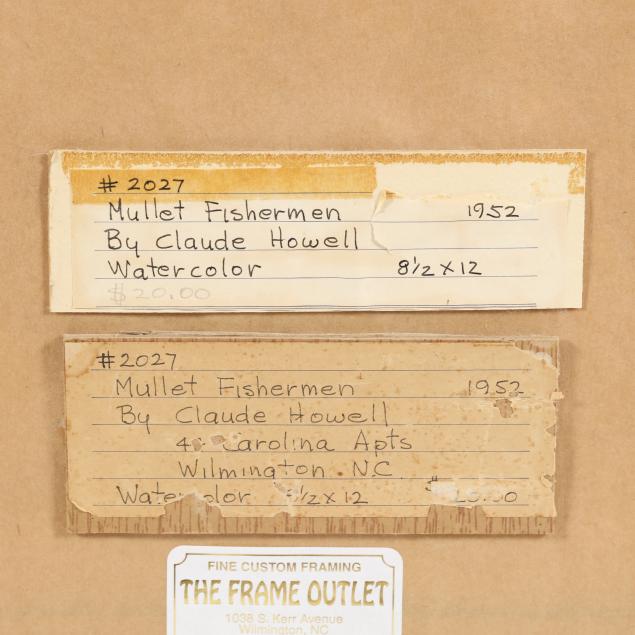 # 2027
Mullet Fishermen 1952
By Claude Howell
Watercolor 8 1/2 x 12
$20.00
#2027
Mullet Fishermen 1952
By Claude Howell
Carolina Apts
Wilmington N.C.
Watercolor 8 1/2 x 12 $20.00
FINE CUSTOM FRAMING
THE FRAME OUTLET
1038 S. Kerr Avenue
Wilmington, NC